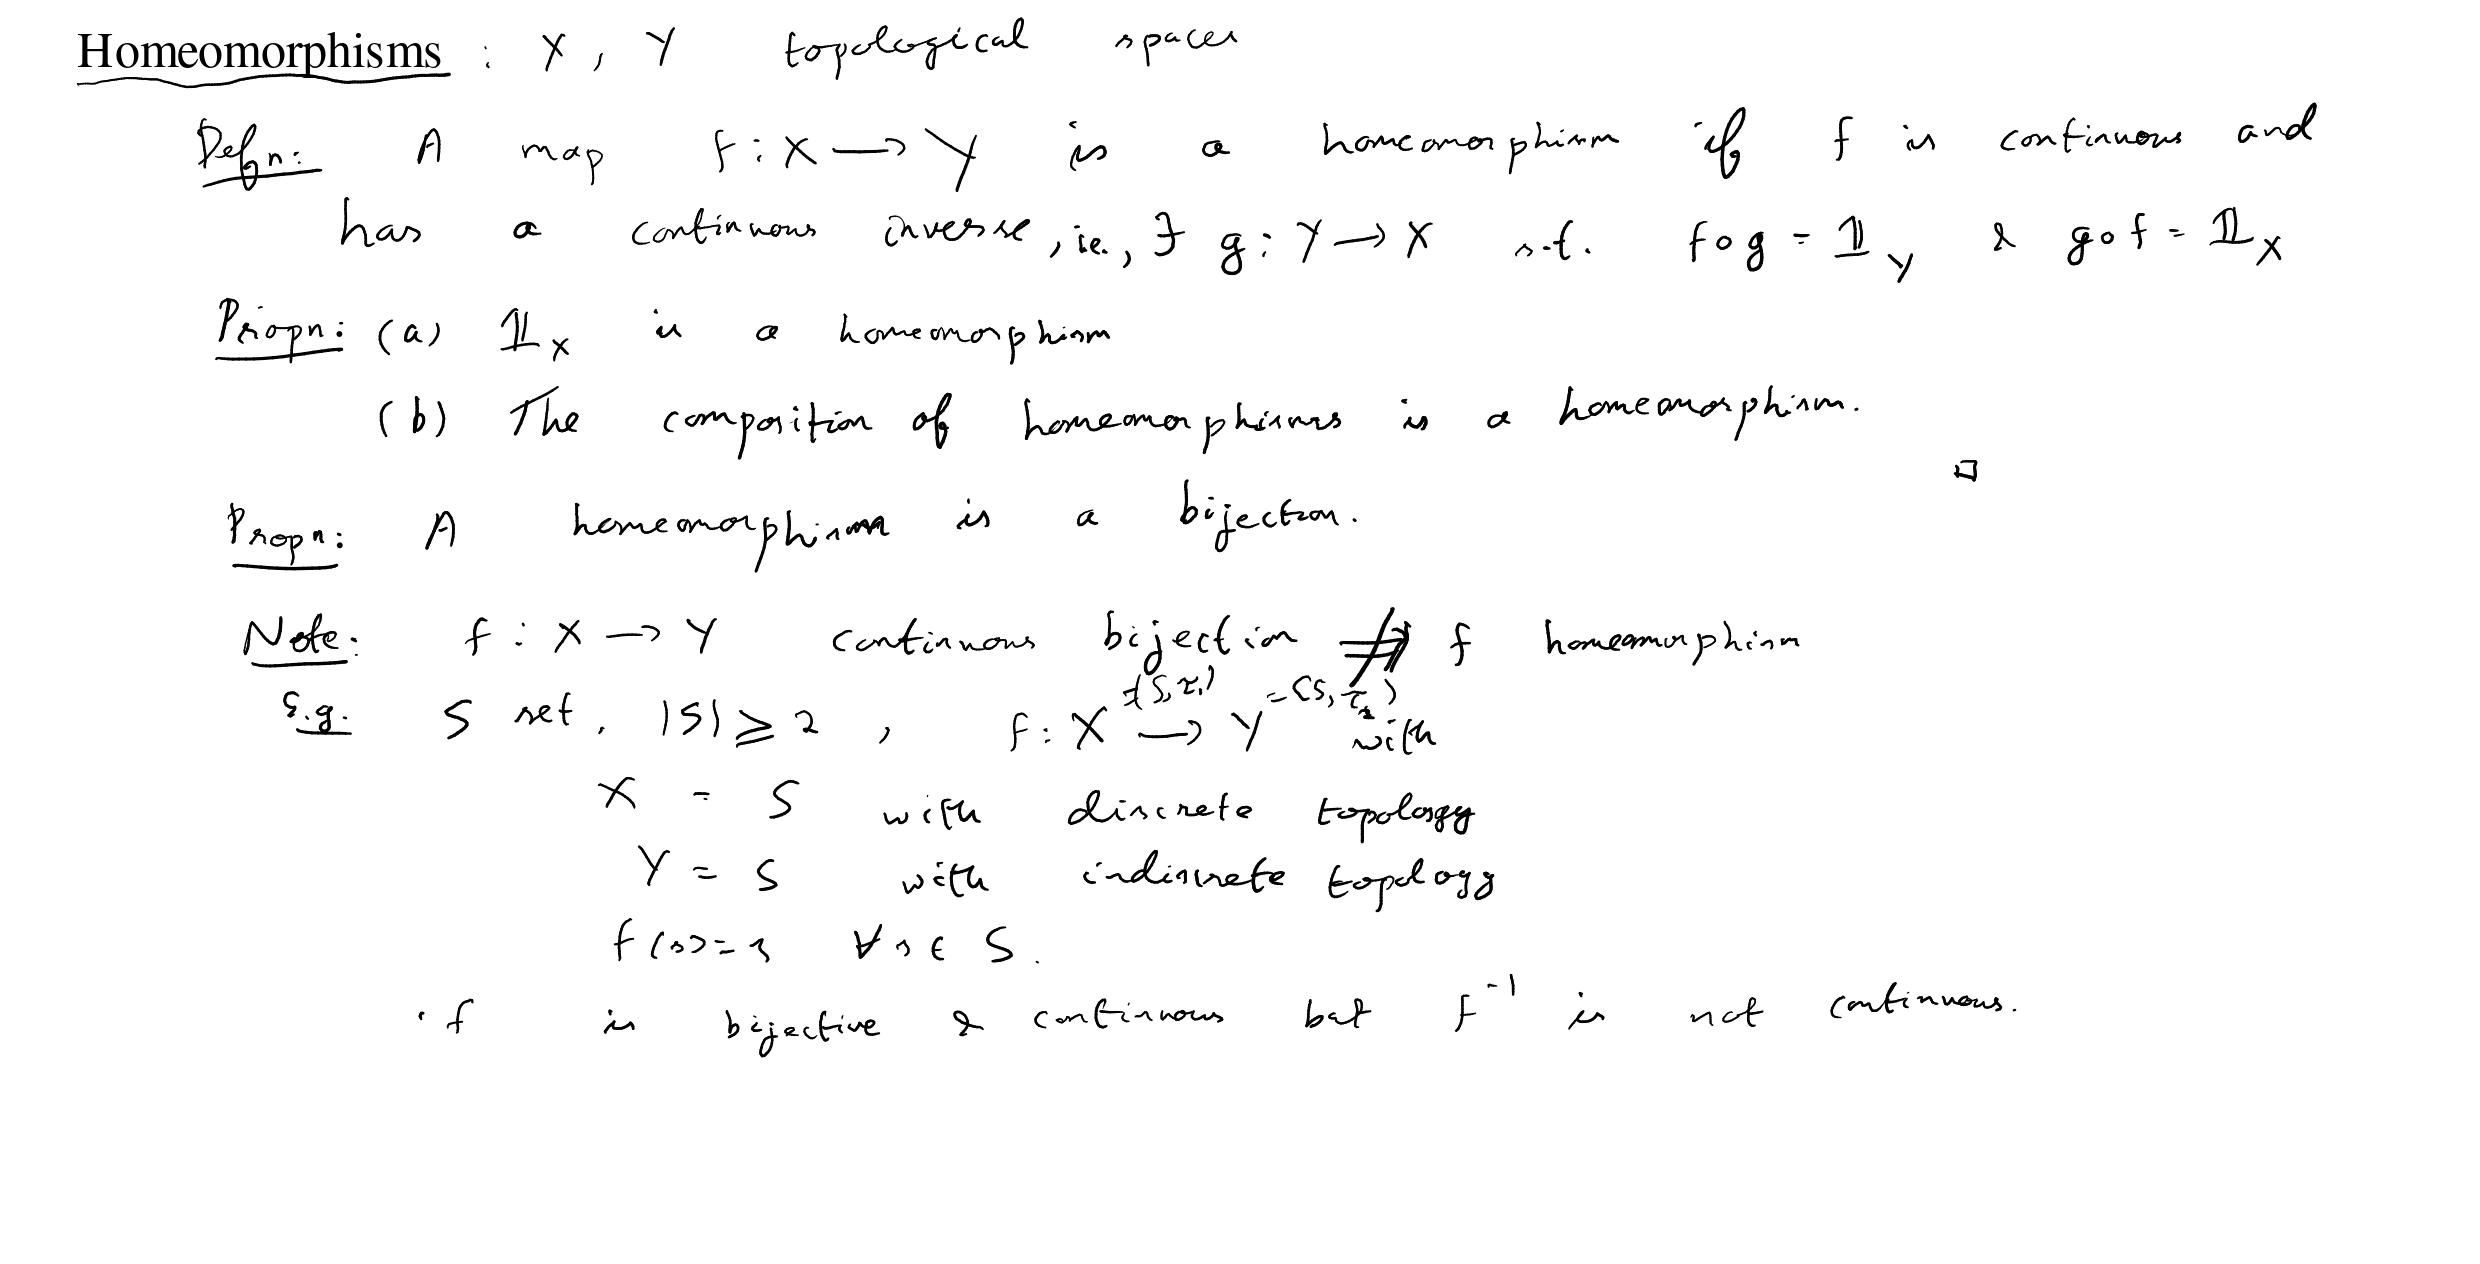 Homeomorphisms : X, Y topological spaces
Defn: A map f: X → Y is a homeomorphism if f is continuous and
has a continuous inverse, ie., ∃ g: Y → X s.t. f∘g = 𝟙_Y & g∘f = 𝟙_X
Propn: (a) 𝟙_X is a homeomorphism
(b) The composition of homeomorphisms is a homeomorphism.
□
Propn: A homeomorphism is a bijection.
Note: f: X → Y continuous bijection ⇏ f homeomorphism
E.g. S set, |S| ≥ 2, f: X =(S, τ₁) → Y =(S, τ₂) with
X = S with discrete topology
Y = S with indiscrete topology
f(s) = s ∀ s ∈ S.
· f is bijective & continuous but f⁻¹ is not continuous.